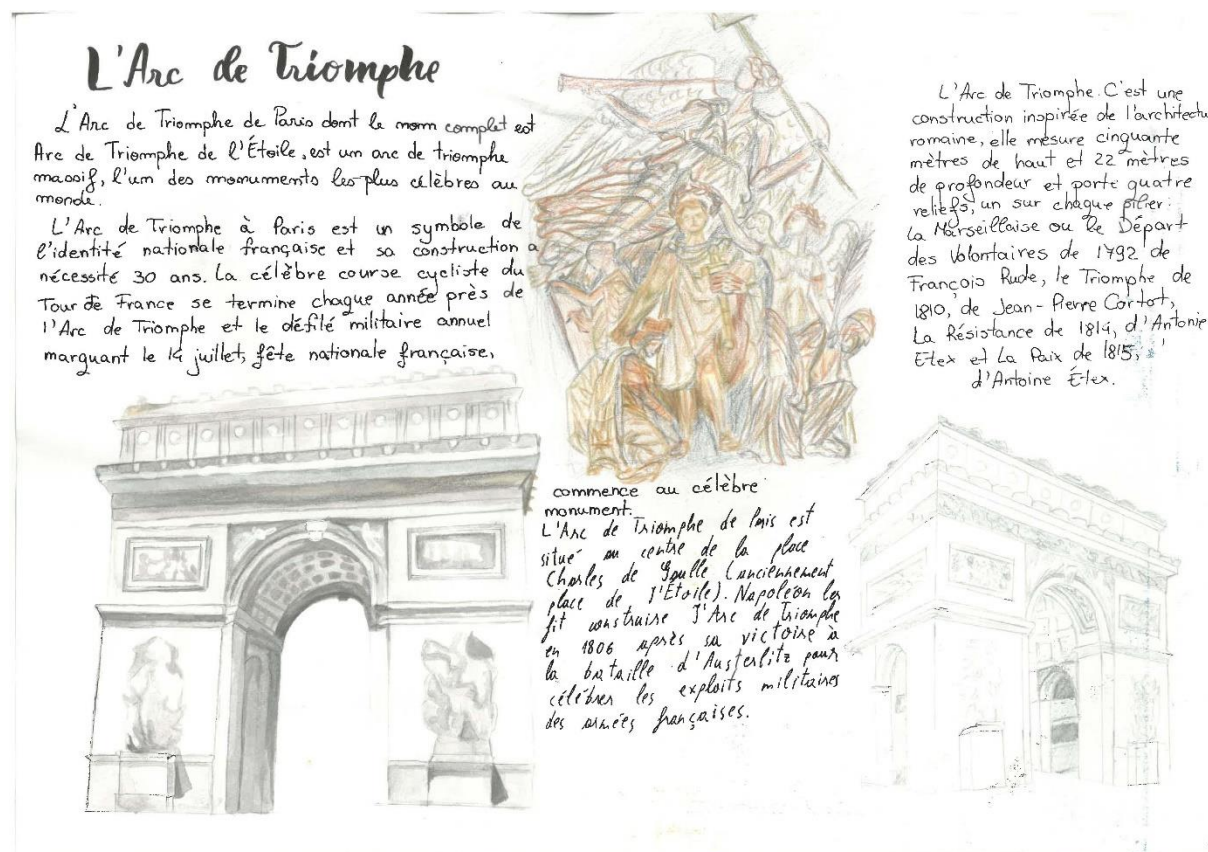 L'Arc de Triomphe
L'Arc de Triomphe de Paris dont le nom complet est
Arc de Triomphe de l'Étoile, est un arc de triomphe
massif, l'un des monuments les plus célèbres au
monde.
L'Arc de Triomphe à Paris est un symbole de
l'identité nationale française et sa construction a
nécessité 30 ans. La célèbre course cycliste du
Tour de France se termine chaque année près de
l'Arc de Triomphe et le défilé militaire annuel
marquant le 14 juillet, fête nationale française,
commence au célèbre
monument.
L'Arc de Triomphe de Paris est
situé au centre de la place
Charles de Gaulle (anciennement
place de l'Étoile). Napoléon Ier
fit construire l'Arc de Triomphe
en 1806 après sa victoire à
la bataille d'Austerlitz pour
célébrer les exploits militaires
des armées françaises.
L'Arc de Triomphe. C'est une
construction inspirée de l'architectu
romaine, elle mesure cinquante
mètres de haut et 22 mètres
de profondeur et porte quatre
reliefs, un sur chaque pilier:
La Marseillaise ou le Départ
des Volontaires de 1792 de
François Rude, le Triomphe de
1810, de Jean-Pierre Cortot,
La Résistance de 1814, d'Antonie
Etex et La Paix de 1815,
d'Antoine Étex.